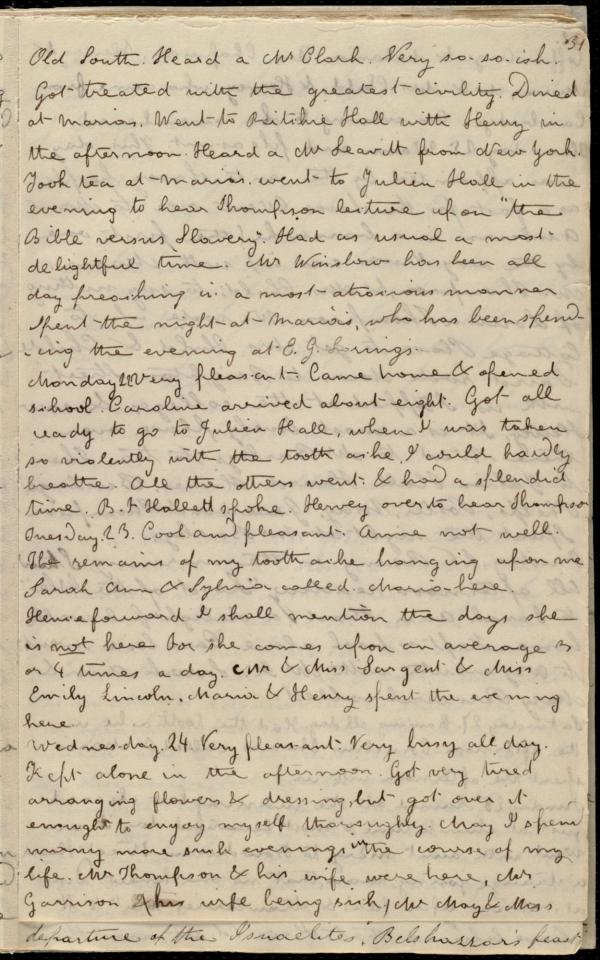 31
Old South. Heard a Mr Clark. Very so-so-ish.
Got treated with the greatest civility. Dined
at Marias. Went to Ritchie Hall with Henry in
the afternoon. Heard a Mr Leavitt from New York.
Took tea at Maria's. went to Julien Hall in the
evening to hear Thompson lecture upon "the
Bible versus Slavery". Had as usual a most
delightful time. Mr Winslow has been all
day preaching in a most atrocious manner
Spent the night at Maria's, who has been spend-
ing the evening at E. G. Lorings.
Monday 22 Very pleasant. Came home & opened
school. Caroline arrived about eight. Got all
ready to go to Julien Hall, when I was taken
so violently with the tooth ache, I could hardly
breathe. All the others went & had a splendid
time. B. F Hallett spoke. Hervey over to hear Thompson
Tuesday. 23. Cool and pleasant. Anne not well.
The remains of my tooth ache hanging upon me
Sarah Ann & Sylvia called. Maria here.
Henceforward I shall mention the days she
is not here for she comes upon an average 3
or 4 times a day. Mr & Miss Sargent & Miss
Emily Lincoln, Maria & Henry spent the evening
here
Wednesday. 24. Very pleasant. Very busy all day.
Kept alone in the afternoon. Got very tired
arranging flowers & dressing, but got over it
enough to enjoy myself thoroughly. May I spend
many more such evenings in the course of my
life. Mr Thompson & his wife were here, Mr.
Garrison (his wife being sick) Mr May & Miss
departure of the Israelites, Belshazzar's feast